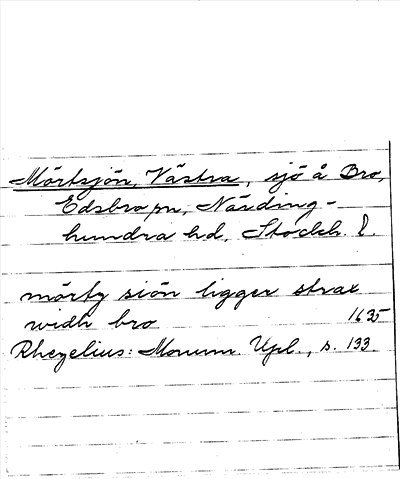 Mörtsjön, Västra, sjö å Bro,
Edsbro sn, Närding-
hundra hd, Stockh. l.
mörty siön ligger strax
widh bro 1635
Rhezelius: Monum. Upl., s. 133.